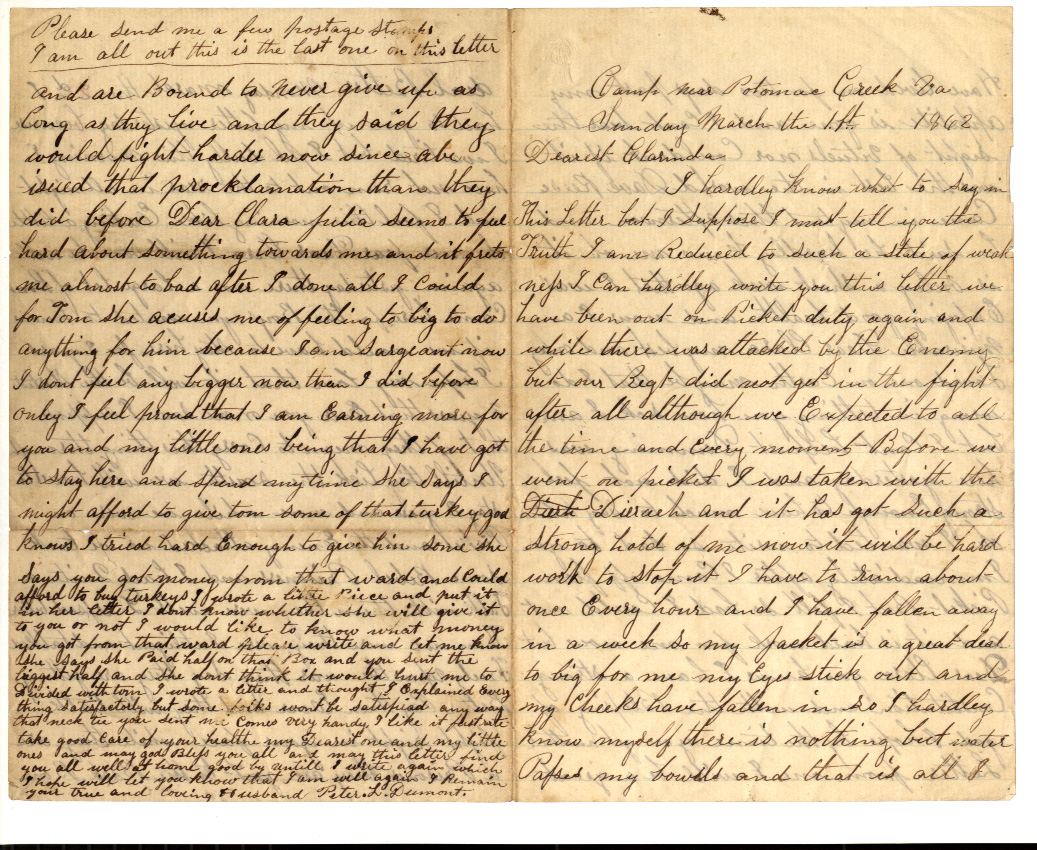 Please send me a few postage stamps
I am all out this is the last one on this letter
and are Bound to never give up as
long as they live and they said they
would fight harder now since abe
isued that procklamation than they
did before Dear Clara Julia seems to feel
hard about something towards me and it frets
me almost to bad after I done all I could
for Tom she acuses me of feeling to big to do
anything for him because I am Sargeant now
I dont feel any bigger now than I did before
only I feel proud that I am Earning more for
you and my little ones being that I have got
to stay here and spend my time she says I
might afford to give tom some of that turkey god
knows I tried hard Enough to give him some she
Says you got money from that ward and Could
afford to buy turkeys I wrote a little Piece and put it
in her letter I dont know whether she will give it
to you or not I would like to know what money
you got from that ward please write and let me know
She says she Paid half on that Box and you sent the
biggest half and she dont think it would hurt me to
Divided with tom I wrote a letter and thought I Explained Every
thing satisfactorly but some folks wont be satisfied any way
that neck tie you sent me Comes very handy I like it first rate
take good Care of your healthe my Dearest one and my little
ones and may god Bless you all and may this letter find
you all well at home good by untill I write again which
I hope will let you know that I am well again I Remain
your true and loveing Husband Peter. L. Dumont.
Camp near Potomac Creek Va
Sunday March the 1st 1862
Dearest Clarinda
I hardley know what to say in
This Letter but I suppose I must tell you the
Truth I am Reduced to such a state of weak
ness I Can hardley write you this letter we
have been out on Picket duty again and
while there was attacked by the Enemy
but our Regt did not get in the fight
after all although we Expected to all
the time and Every moment Before we
went on picket I was taken with the
Dierh Dierach and it has got such a
strong hold of me now it will be hard
work to stop it I have to run about
once Every hour and I have fallen away
in a week so my Jacket is a great deal
to big for me my Eyes stick out and
my Cheeks have fallen in so I hardley
know myself there is nothing but water
Passes my bowels and that is all I